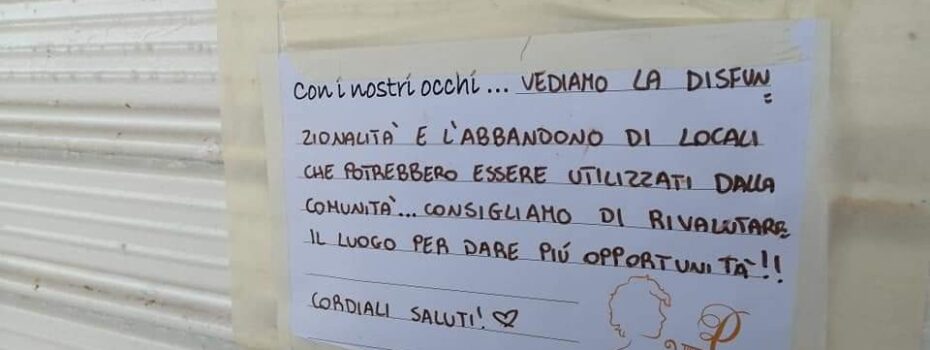 Con i nostri occhi... VEDIAMO LA DISFUN
ZIONALITÀ E L'ABBANDONO DI LOCALI
CHE POTREBBERO ESSERE UTILIZZATI DALLA
COMUNITÀ... CONSIGLIAMO DI RIVALUTARE
IL LUOGO PER DARE PIÚ OPPORTUNITÀ!!
CORDIALI SALUTI!